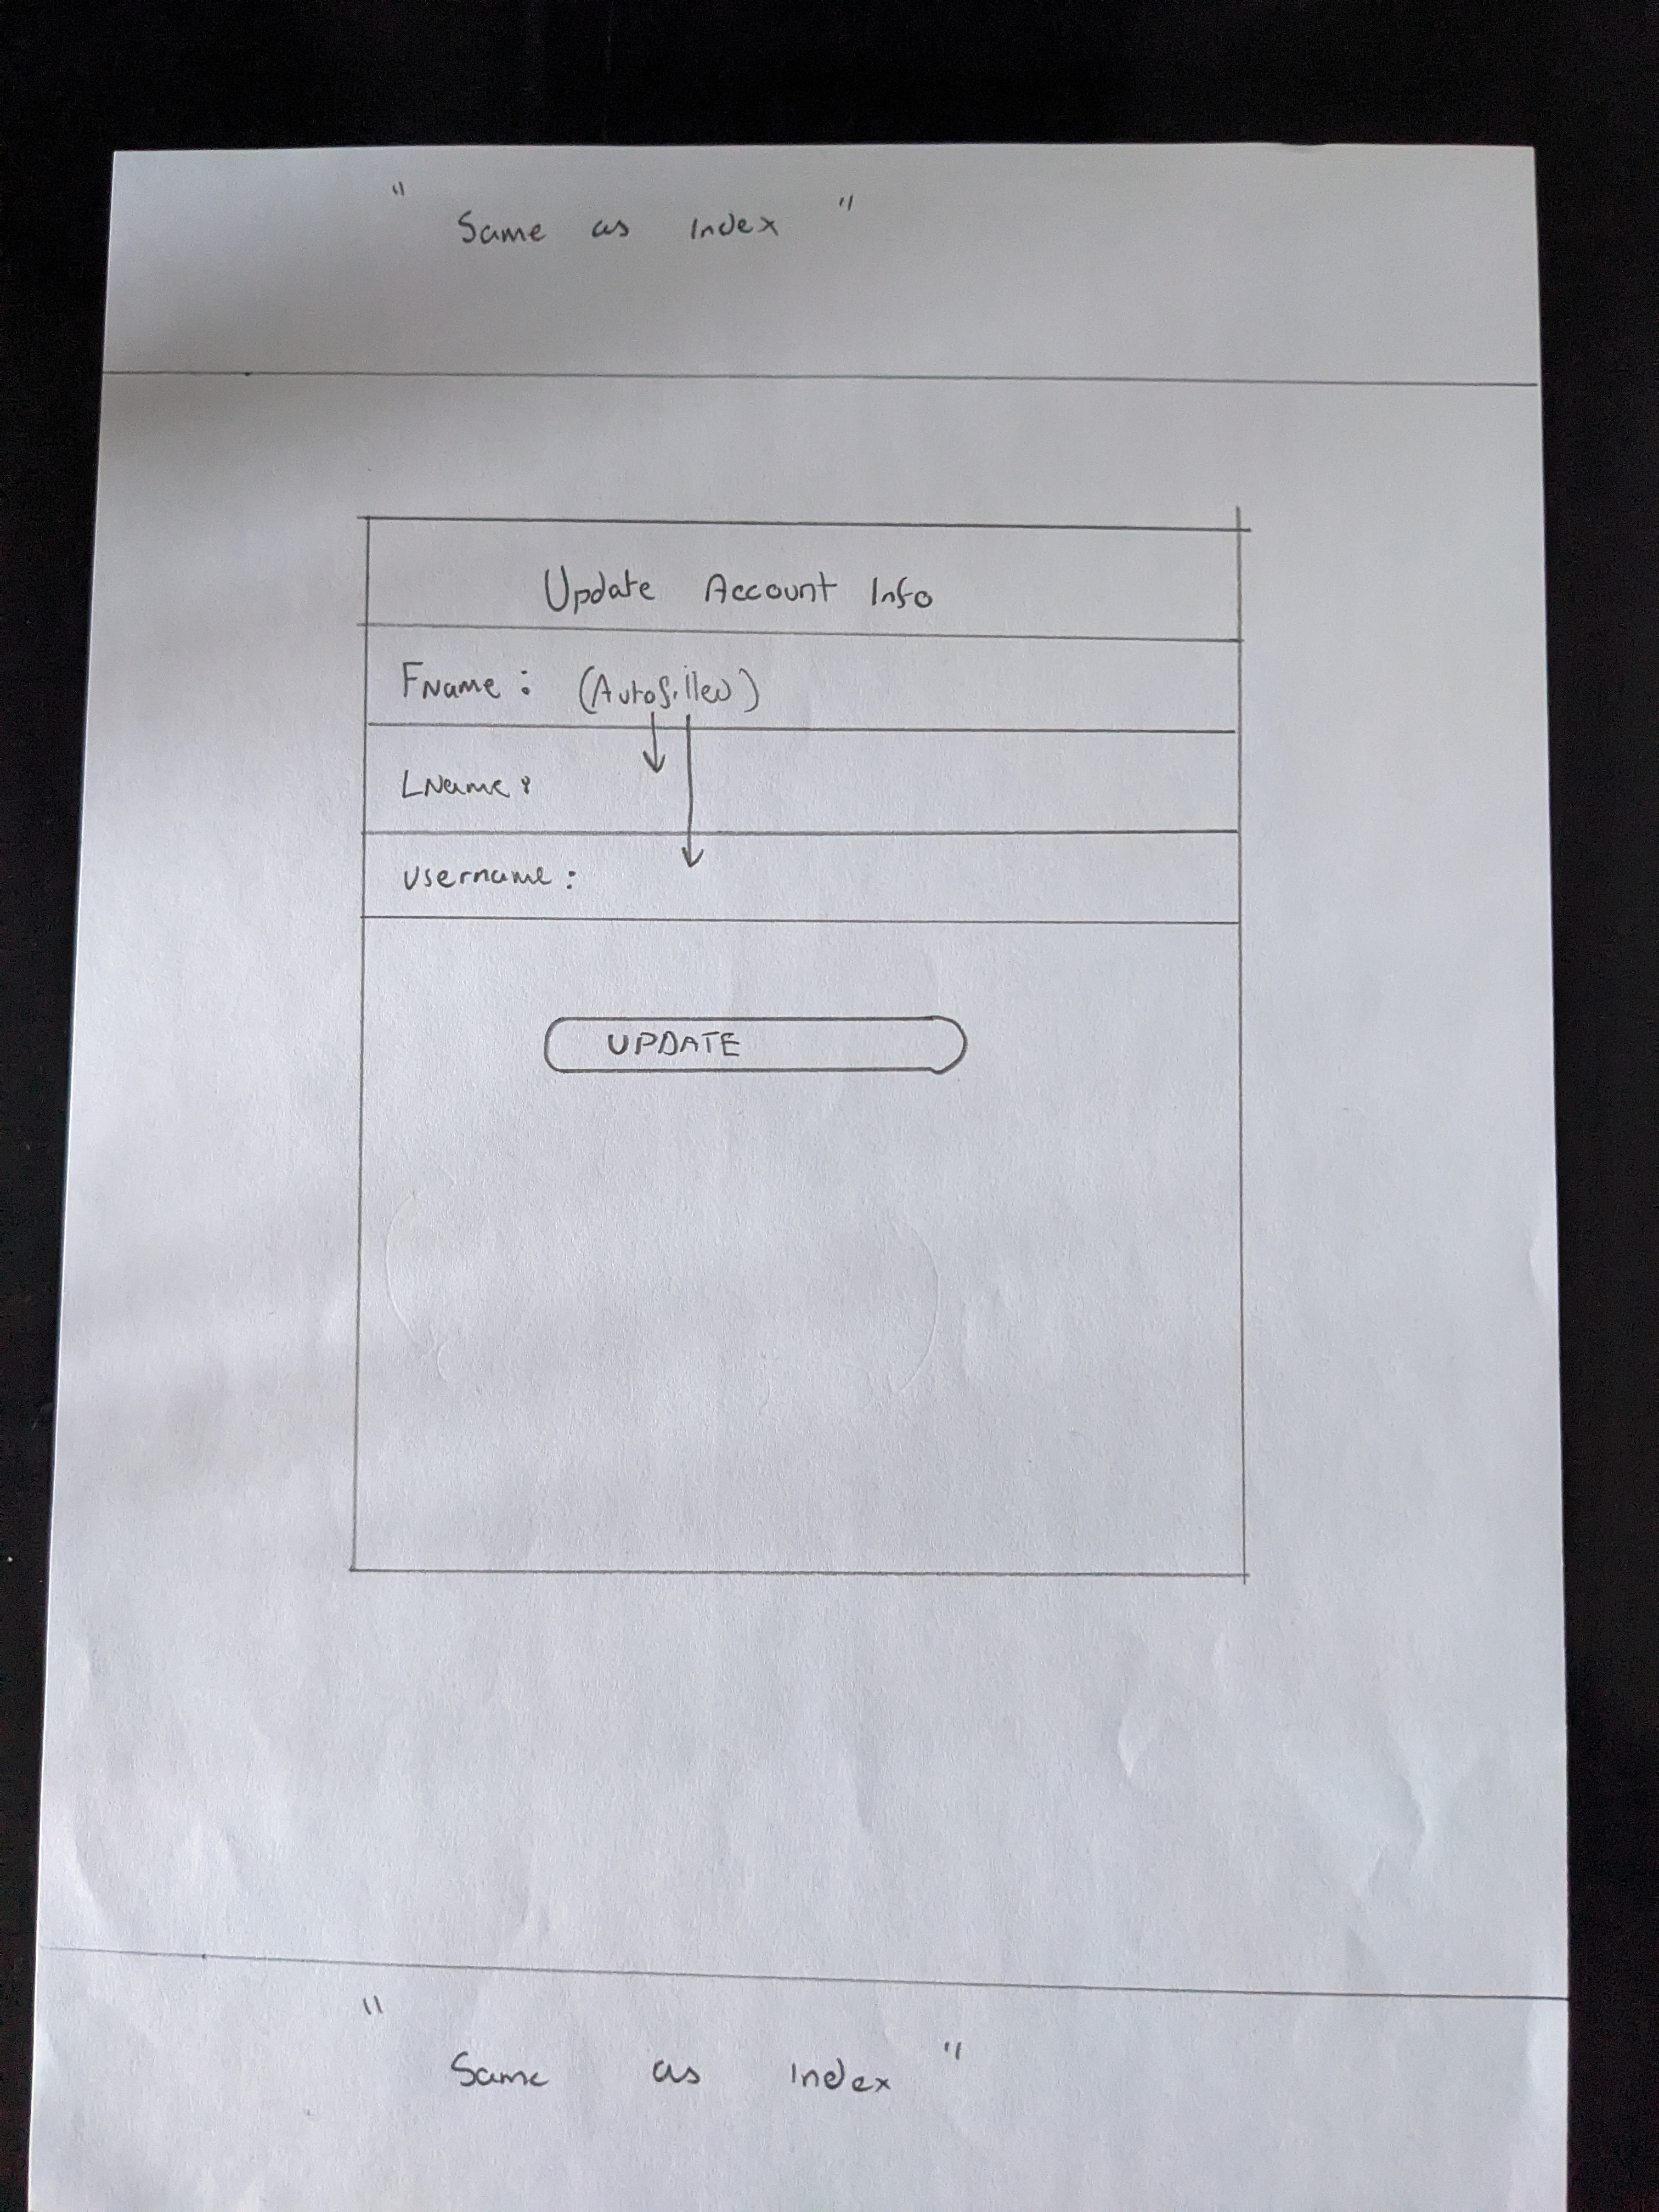 " Same as Index "
Update Account Info
FName : (Autofilled)
LName :
Username :
UPDATE
" Same as Index "